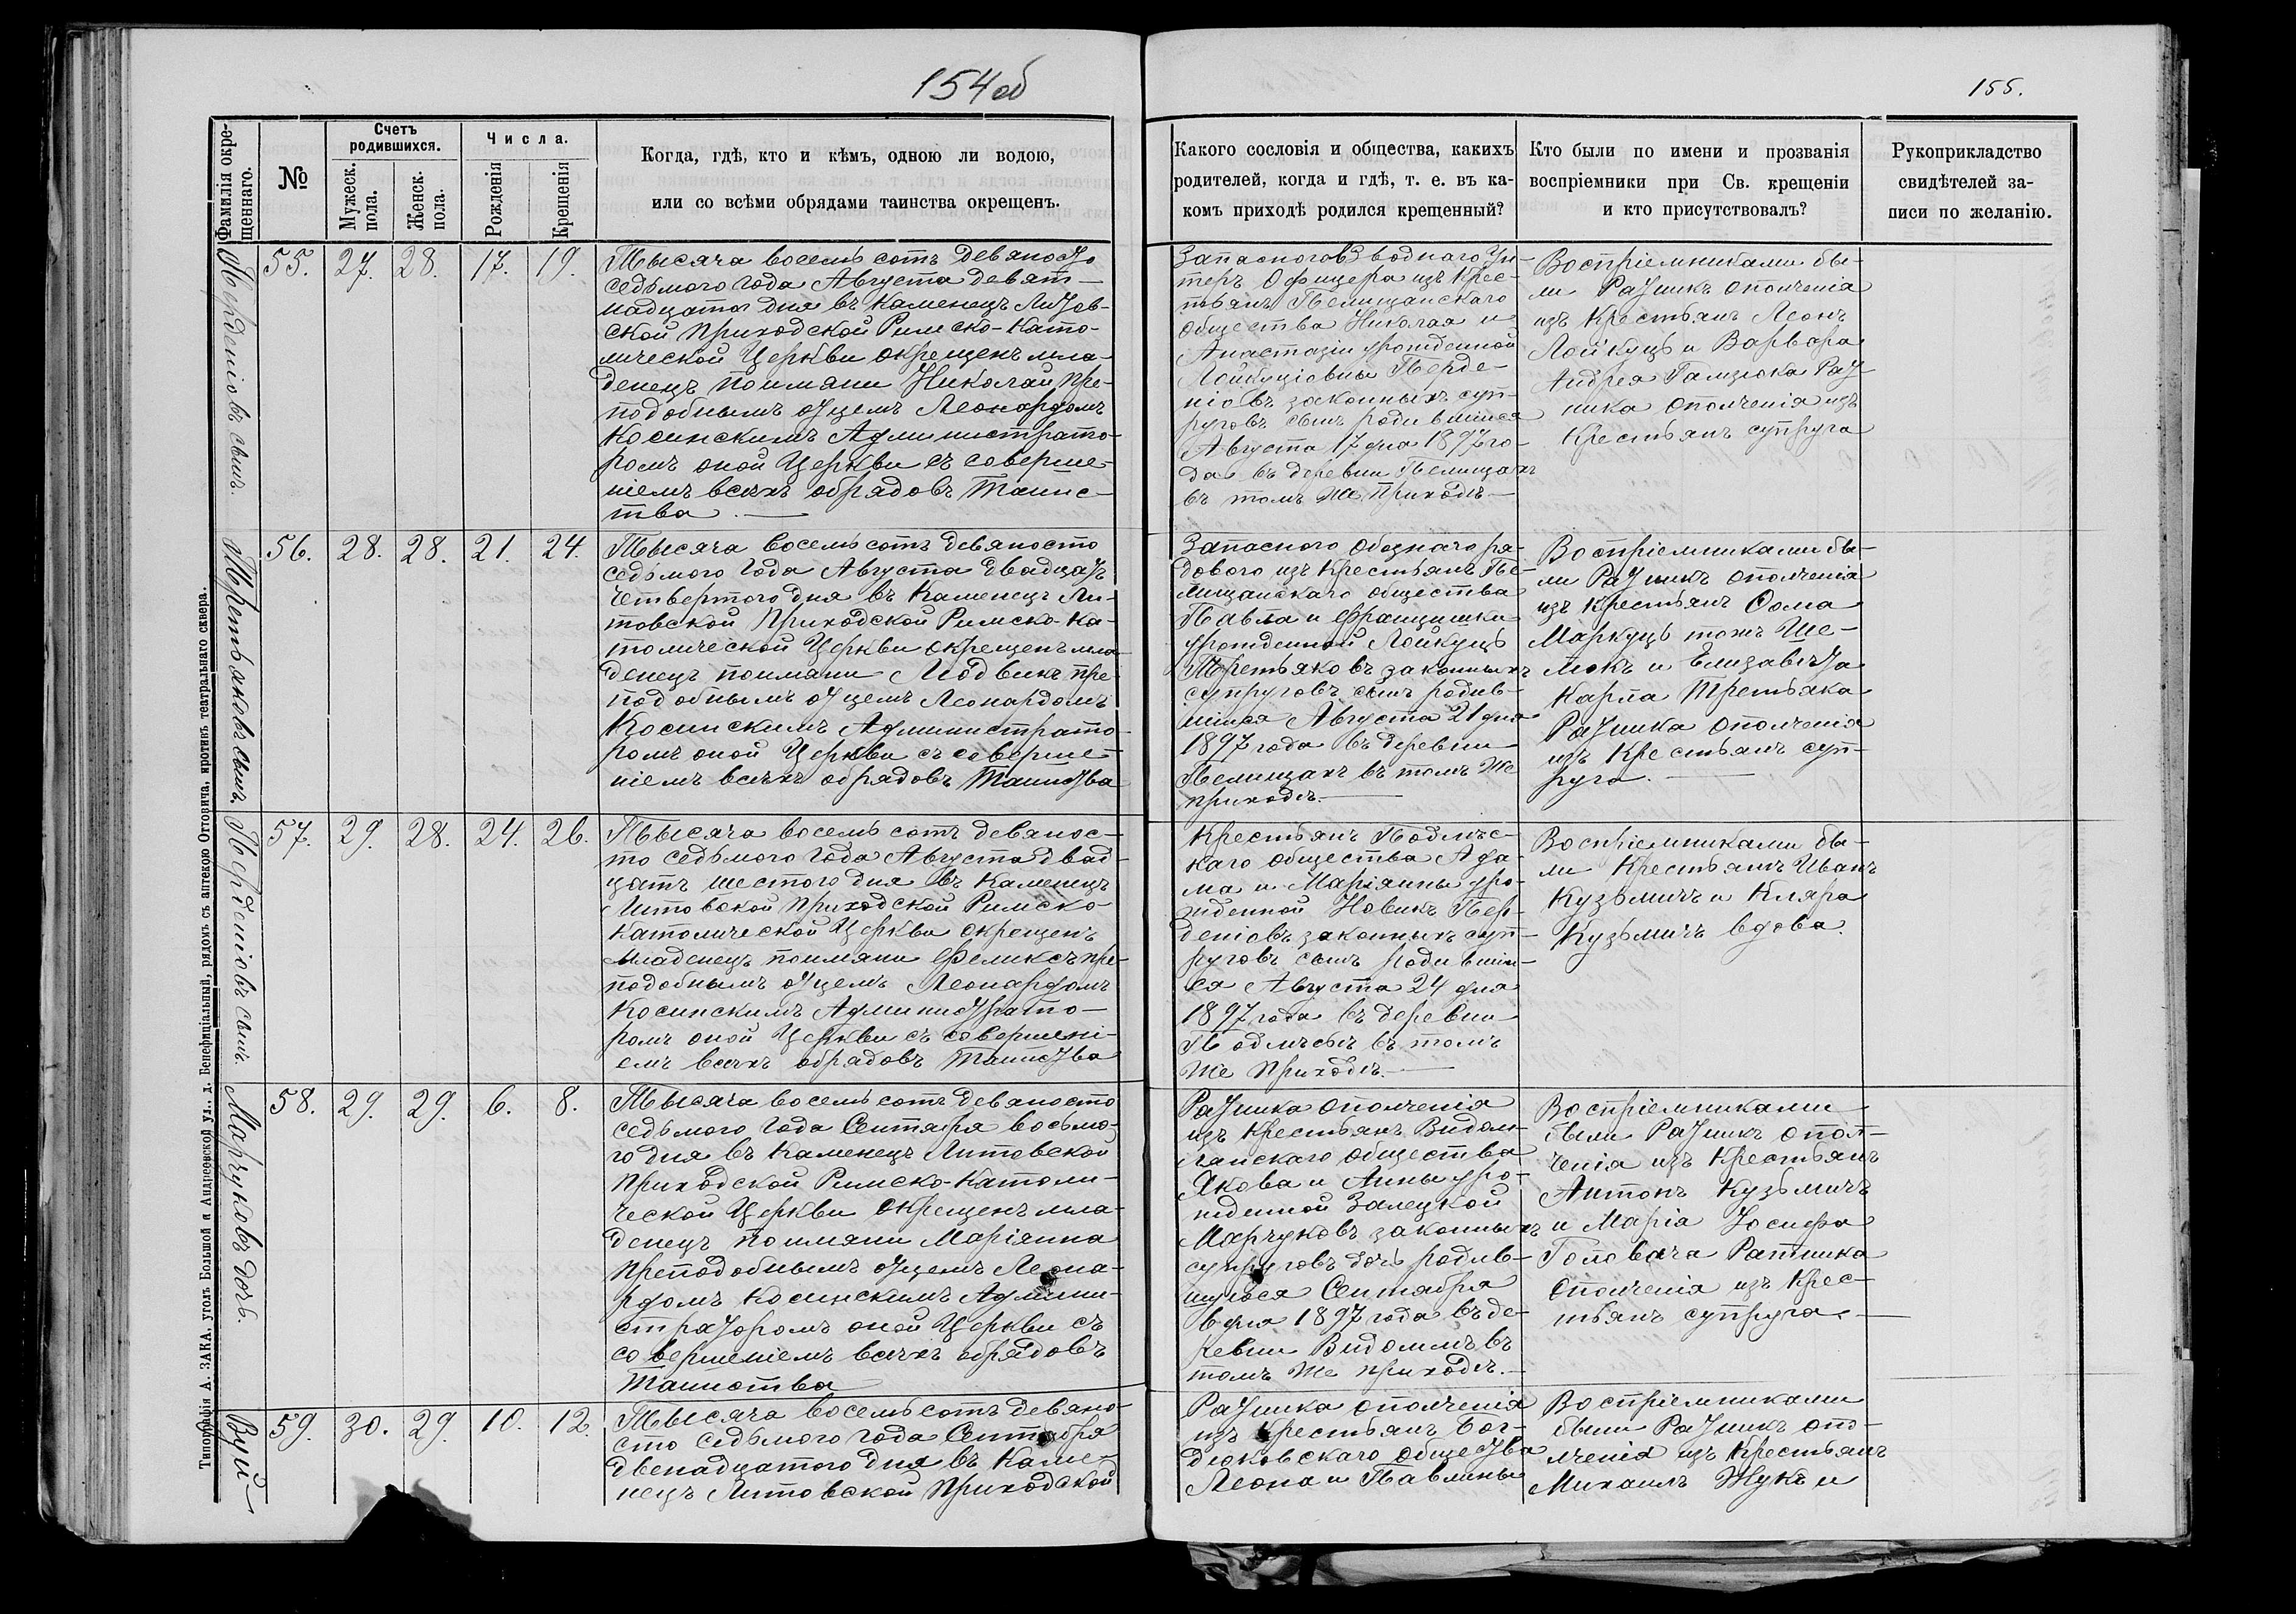 154об
155.
Фамилія окре-
щеннаго.
№
Счетъ
родившихся.
Мужеск.
пола.
Женск.
пола.
Числа.
Рожденія
Крещенія
Когда, гдѣ, кто и кѣмъ, одною ли водою,
или со всѣми обрядами таинства окрещенъ.
Какого сословія и общества, какихъ
родителей, когда и гдѣ, т. е. въ ка-
комъ приходѣ родился крещенный?
Кто были по имени и прозванія
воспріемники при Св. крещеніи
и кто присутствовалъ?
Рукоприкладство
свидѣтелей за-
писи по желанію.
Перденіовъ сынъ.
55. 27. 28. 17. 19.
Тысяча восемь сотъ девяносто
седьмого года Августа девят-
надцатого дня въ Каменецъ Литов-
ской Приходской Римско-Като-
лической Церкви окрещенъ мла-
денецъ по имяни Николай пре-
подобнымъ отцемъ Леонардомъ
Косинскимъ Администрато-
ромъ оной Церкви съ соверше-
ніемъ всѣхъ обрядовъ Таинс-
тва.
Запасного Взводнаго Ун-
теръ Офицера изъ Крес-
тьянъ Пелищанскаго
общества Николая и
Анастазіи урожденной
Лойкуціовны Перде-
ніовъ законныхъ суп-
руговъ сынъ родившійся
Августа 17 дня 1897 го-
да въ деревни Пелищахъ
въ томъ же Приходѣ
Воспріемниками бы-
ли Ратникъ ополченія
изъ Крестьянъ Леонъ
Лойкуцъ и Варвара
Андрея Гамзюка Рат-
ника ополченія изъ
Крестьянъ супруга
Третьяковъ сынъ.
56. 28. 28. 21. 24.
Тысяча восемь сотъ девяносто
седьмого года Августа двадцать
четвертого дня въ Каменецъ Ли-
товской Приходской Римско-Ка-
толической Церкви окрещенъ мла-
денецъ по имяни Людвикъ пре-
подобнымъ отцемъ Леонардомъ
Косинскимъ Администрато-
ромъ оной Церкви съ соверше-
ніемъ всѣхъ обрядовъ Таинства
Запасного обознаго ря-
дового изъ Крестьянъ Пе-
лищанскаго общества
Павла и Францишки
урожденной Лойкуцъ
Третьяковъ законныхъ
супруговъ сынъ родив-
шійся Августа 21 дня
1897 года въ деревни
Пелищахъ въ томъ же
приходѣ.
Воспріемниками бы-
ли Ратникъ ополченія
изъ Крестьянъ Ѳома
Маркуцъ тожъ Ше-
люкъ и Елизавѣта
Карла Третьяка
Ратника ополченія
изъ Крестьянъ суп-
руга.
Перденіовъ сынъ.
57. 29. 28. 24. 26.
Тысяча восемь сотъ девянос-
то седьмого года Августа двад-
цать шестого дня въ Каменецъ
Литовской Приходской Римско-
Католической Церкви окрещенъ
младенецъ по имяни Феликсъ пре-
подобнымъ отцемъ Леонардомъ
Косинскимъ Администрато-
ромъ оной Церкви съ совершені-
емъ всѣхъ обрядовъ Таинства
Крестьянъ Подлѣс-
каго общества Ада-
ма и Маріянны уро-
жденной Новикъ Пер-
деніовъ законныхъ суп-
руговъ сынъ родившій-
ся Августа 24 дня
1897 года въ деревни
Подлѣсьѣ въ томъ
же Приходѣ.
Воспріемниками бы-
ли Крестьянъ Иванъ
Кузьмичъ и Кляра
Кузьмичъ вдова.
Марчуковъ дочь.
58. 29. 29. 6. 8.
Тысяча восемь сотъ девяносто
седьмого года Сентября восьмо-
го дня въ Каменецъ Литовской
Приходской Римско-Католи-
ческой Церкви окрещенъ мла-
денецъ по имяни Маріянна
Преподобнымъ отцемъ Леона-
рдомъ Косинскимъ Админи-
страторомъ оной Церкви съ
совершеніемъ всѣхъ обрядовъ
Таинства
Ратника ополченія
изъ Крестьянъ Видом-
лянскаго общества
Якова и Анны уро-
жденной Залецкой
Марчуковъ законныхъ
супруговъ дочь родив-
шуюся Сентября
6 дня 1897 года въ де-
ревни Видомлѣ въ
томъ же приходѣ.
Воспріемниками
были Ратникъ опол-
ченія изъ Крестьянъ
Антонъ Кузьмичъ
и Марія Іосифа
Головача Ратника
ополченія изъ Крес-
тьянъ супруга.
Вуй-
59. 30. 29. 10. 12.
Тысяча восемь сотъ девяно-
сто седьмого года Сентября
двенадцатого дня въ Каме-
нецъ Литовской Приходской
Ратника ополченія
изъ Крестьянъ Бог-
дюковскаго общества
Леона и Павлины
Воспріемниками
были Ратникъ опо-
лченія изъ Крестьянъ
Михаилъ Жукъ и
Типографія А. ЗАКА, уголъ Большой и Андреевской ул., д. Бенефиціальный, рядомъ съ аптекою Оттовича, противъ театральнаго сквера.